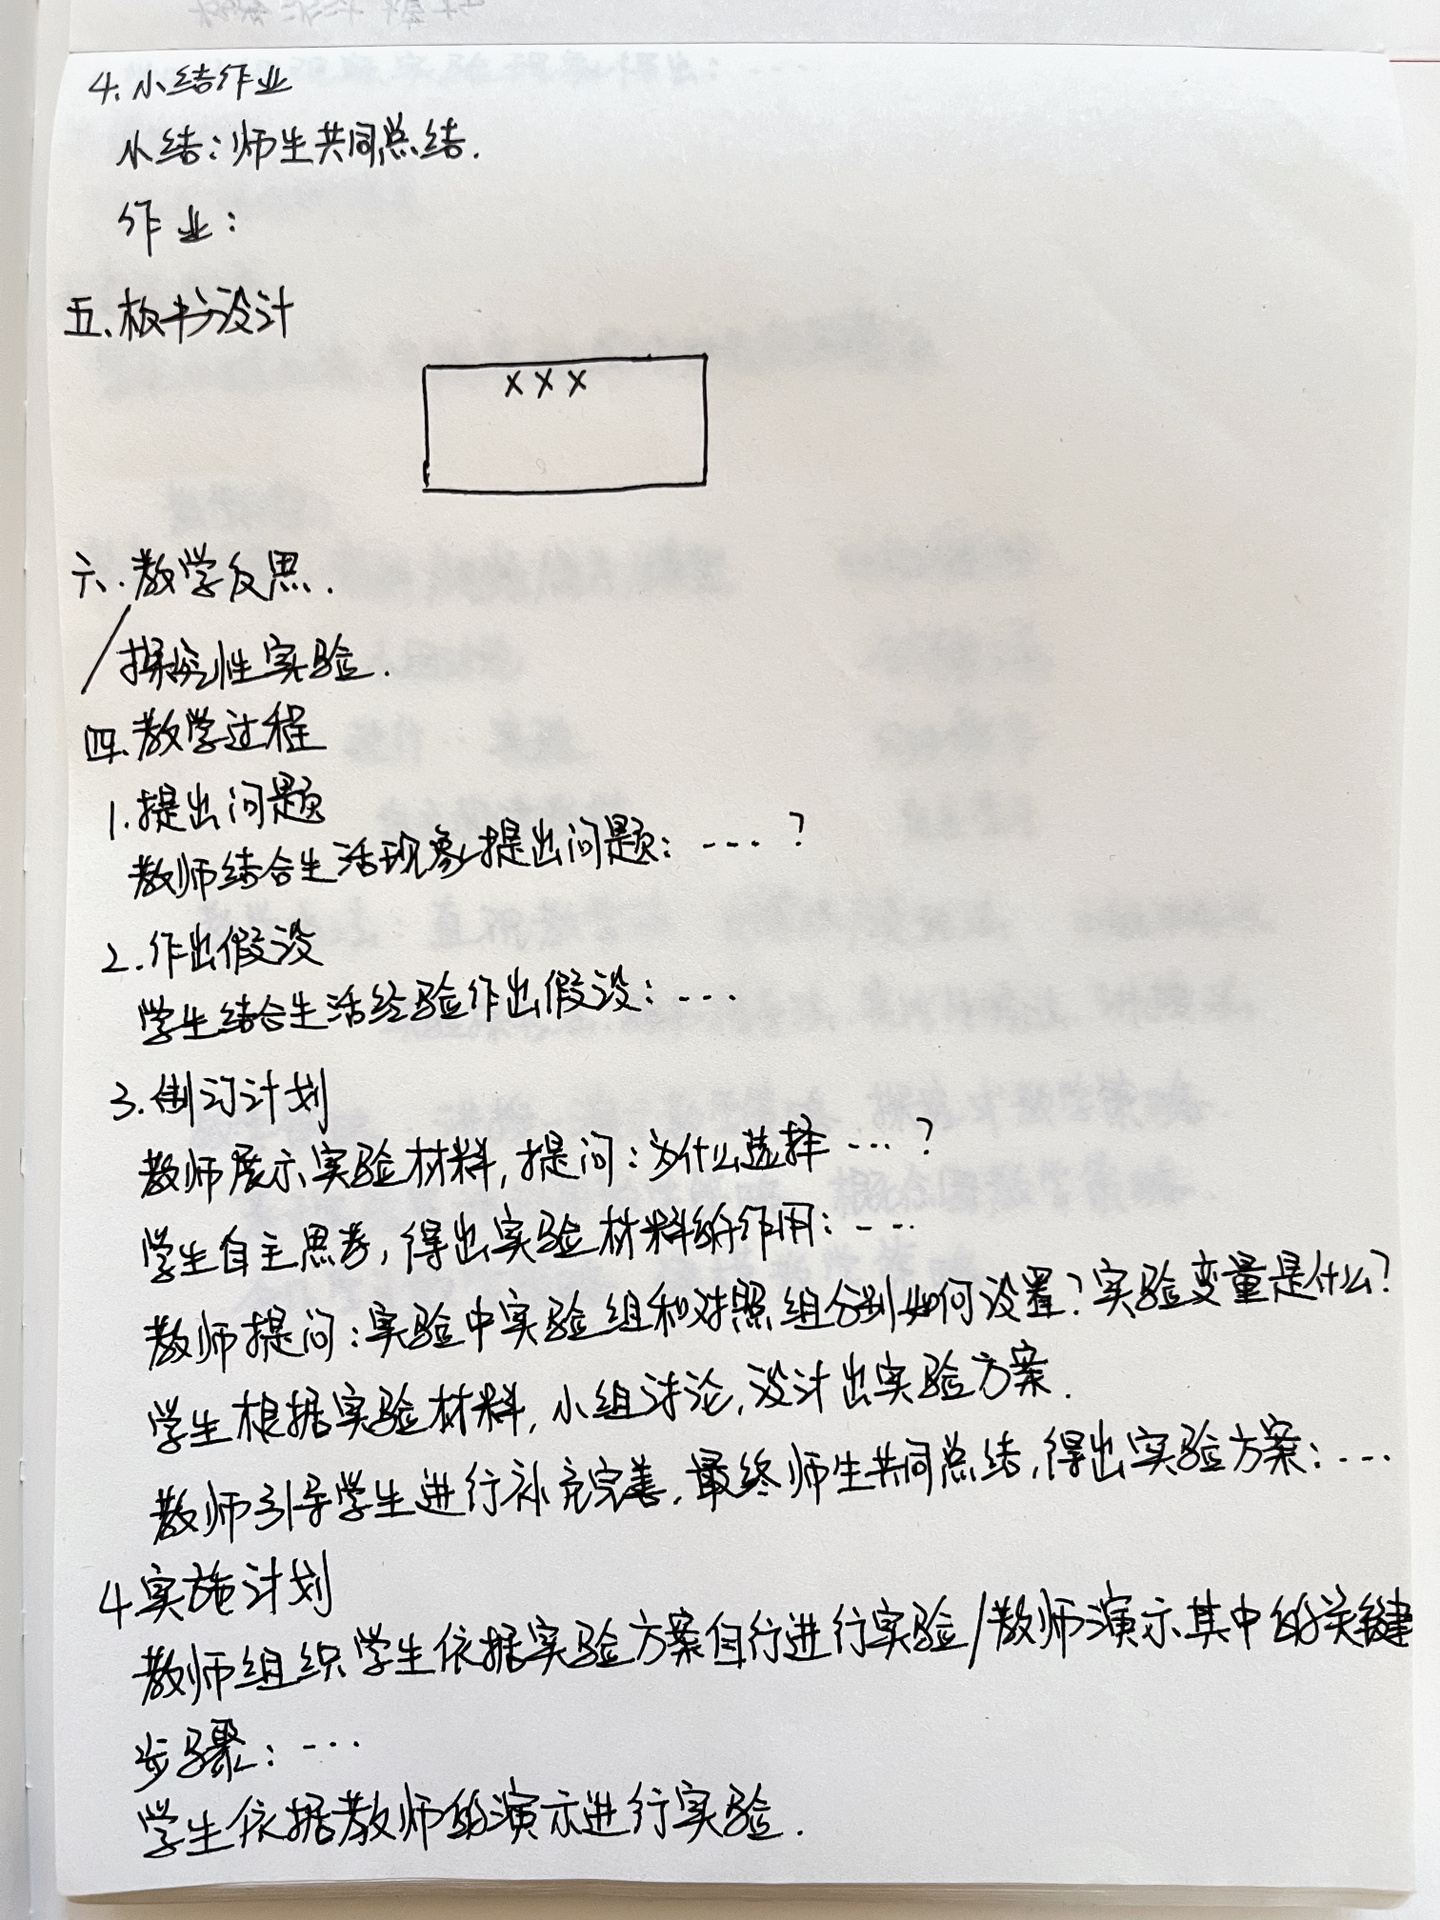 4.小结作业
小结:师生共同总结.
作业:
五.板书设计
×××
六.教学反思.
/探究性实验.
四.教学过程
1.提出问题
教师结合生活现象提出问题:...?
2.作出假设
学生结合生活经验作出假设:...
3.制订计划
教师展示实验材料,提问:为什么选择...?
学生自主思考,得出实验材料的作用:...
教师提问:实验中实验组和对照组分别如何设置?实验变量是什么?
学生根据实验材料,小组讨论,设计出实验方案.
教师引导学生进行补充完善,最终师生共同总结,得出实验方案:...
4.实施计划
教师组织学生依据实验方案自行进行实验/教师演示其中的关键
步骤:...
学生依据教师的演示进行实验.